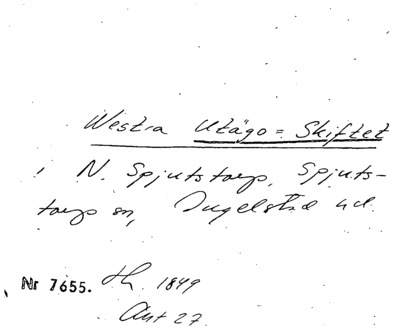 Westra Utägo=Skiftet
i N. Spjutstorp, Spjuts-
torps sn, Ingelstad hd.
Nr 7655. 1849
Akt 27.